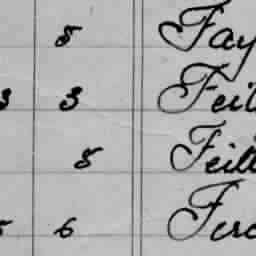 8 Fay
3 3 Feil
8 Feill
5 6 Ferd